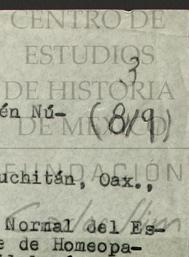 CENTRO DE
ESTUDIOS
3
DE HISTORIA
én Nú- (8/9)
DE MÉXICO
FUNDACIÓN
uchitán, Oax.,
Carlos Slim
Normal del Es-
e de Homeopa-